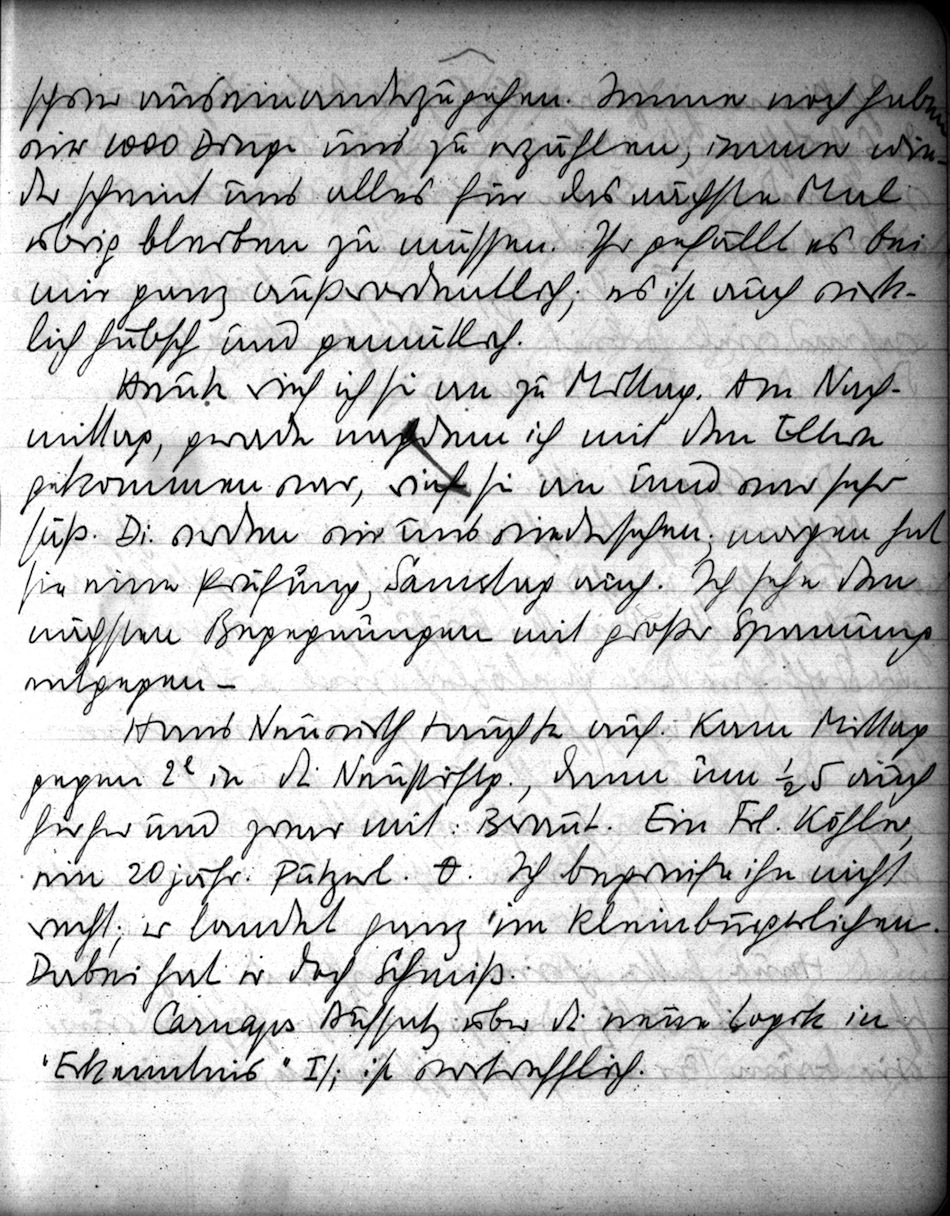 schwer auseinanderzugehen. Immer noch haben
wir 1000 Dinge uns zu erzählen, immer wie-
der scheint uns alles für das nächste Mal
übrig bleiben zu müssen. Ihr gefällt es bei
mir ganz außerordentlich; es ist auch wirk-
lich hübsch und gemütlich.
Heute rief ich sie an zu Mittag. Am Nach-
mittag, gerade nachdem ich mit den Eltern
gekommen war, rief sie an und war sehr
süß. Di. werden wir uns wiedersehen; morgen hat
sie eine Prüfung, Samstag auch. Ich sehe den
nächsten Begegnungen mit großer Spannung
entgegen –
Hans Neurath tauchte auf. Kam Mittag
gegen 2h in die Neustiftg., dann um ½ 5 auch
hierher und zwar mit: Braut. Ein Frl. Köhler,
ein 20 jähr. Putzerl. Ich begreife ihn nicht
recht; er landet ganz im Kleinbürgerlichen.
Dabei hat er doch Schmiß.
Carnaps Aufsatz über die neue Logik in
"Erkenntnis" I/1 ist vortrefflich.